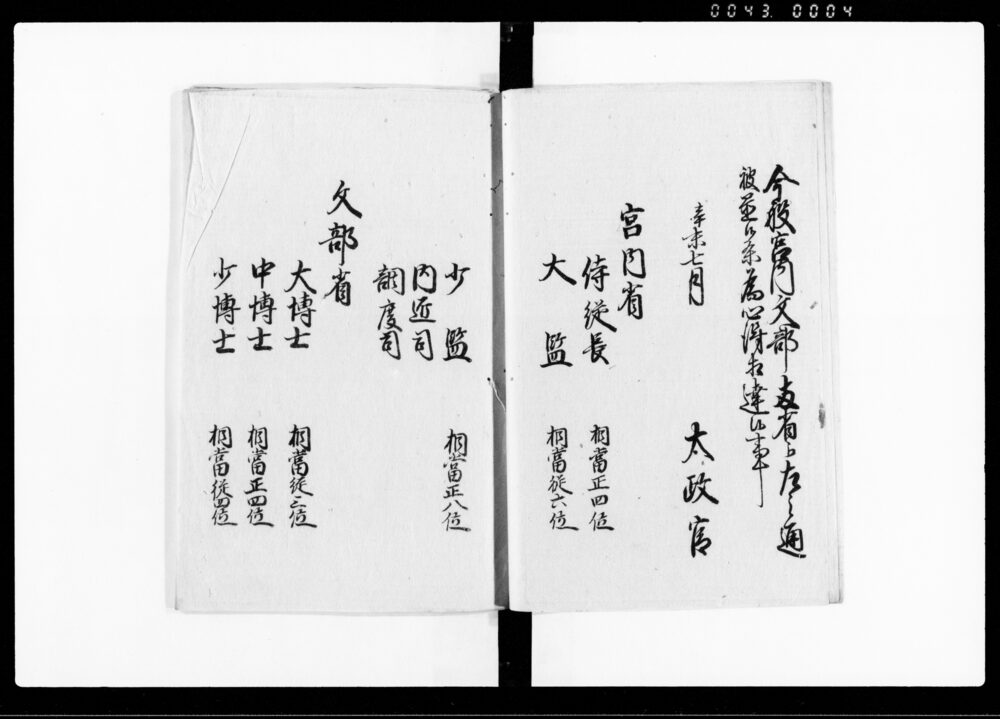 0043 0004
今般宮内文部両省江左之通
被並候条為心得相達候事
辛未七月
太政官
宮内省
侍従長 相當正四位
大監 相當従六位
少監 相當正八位
内匠司
調度司
文部省
大博士 相當従三位
中博士 相當正四位
少博士 相當従四位